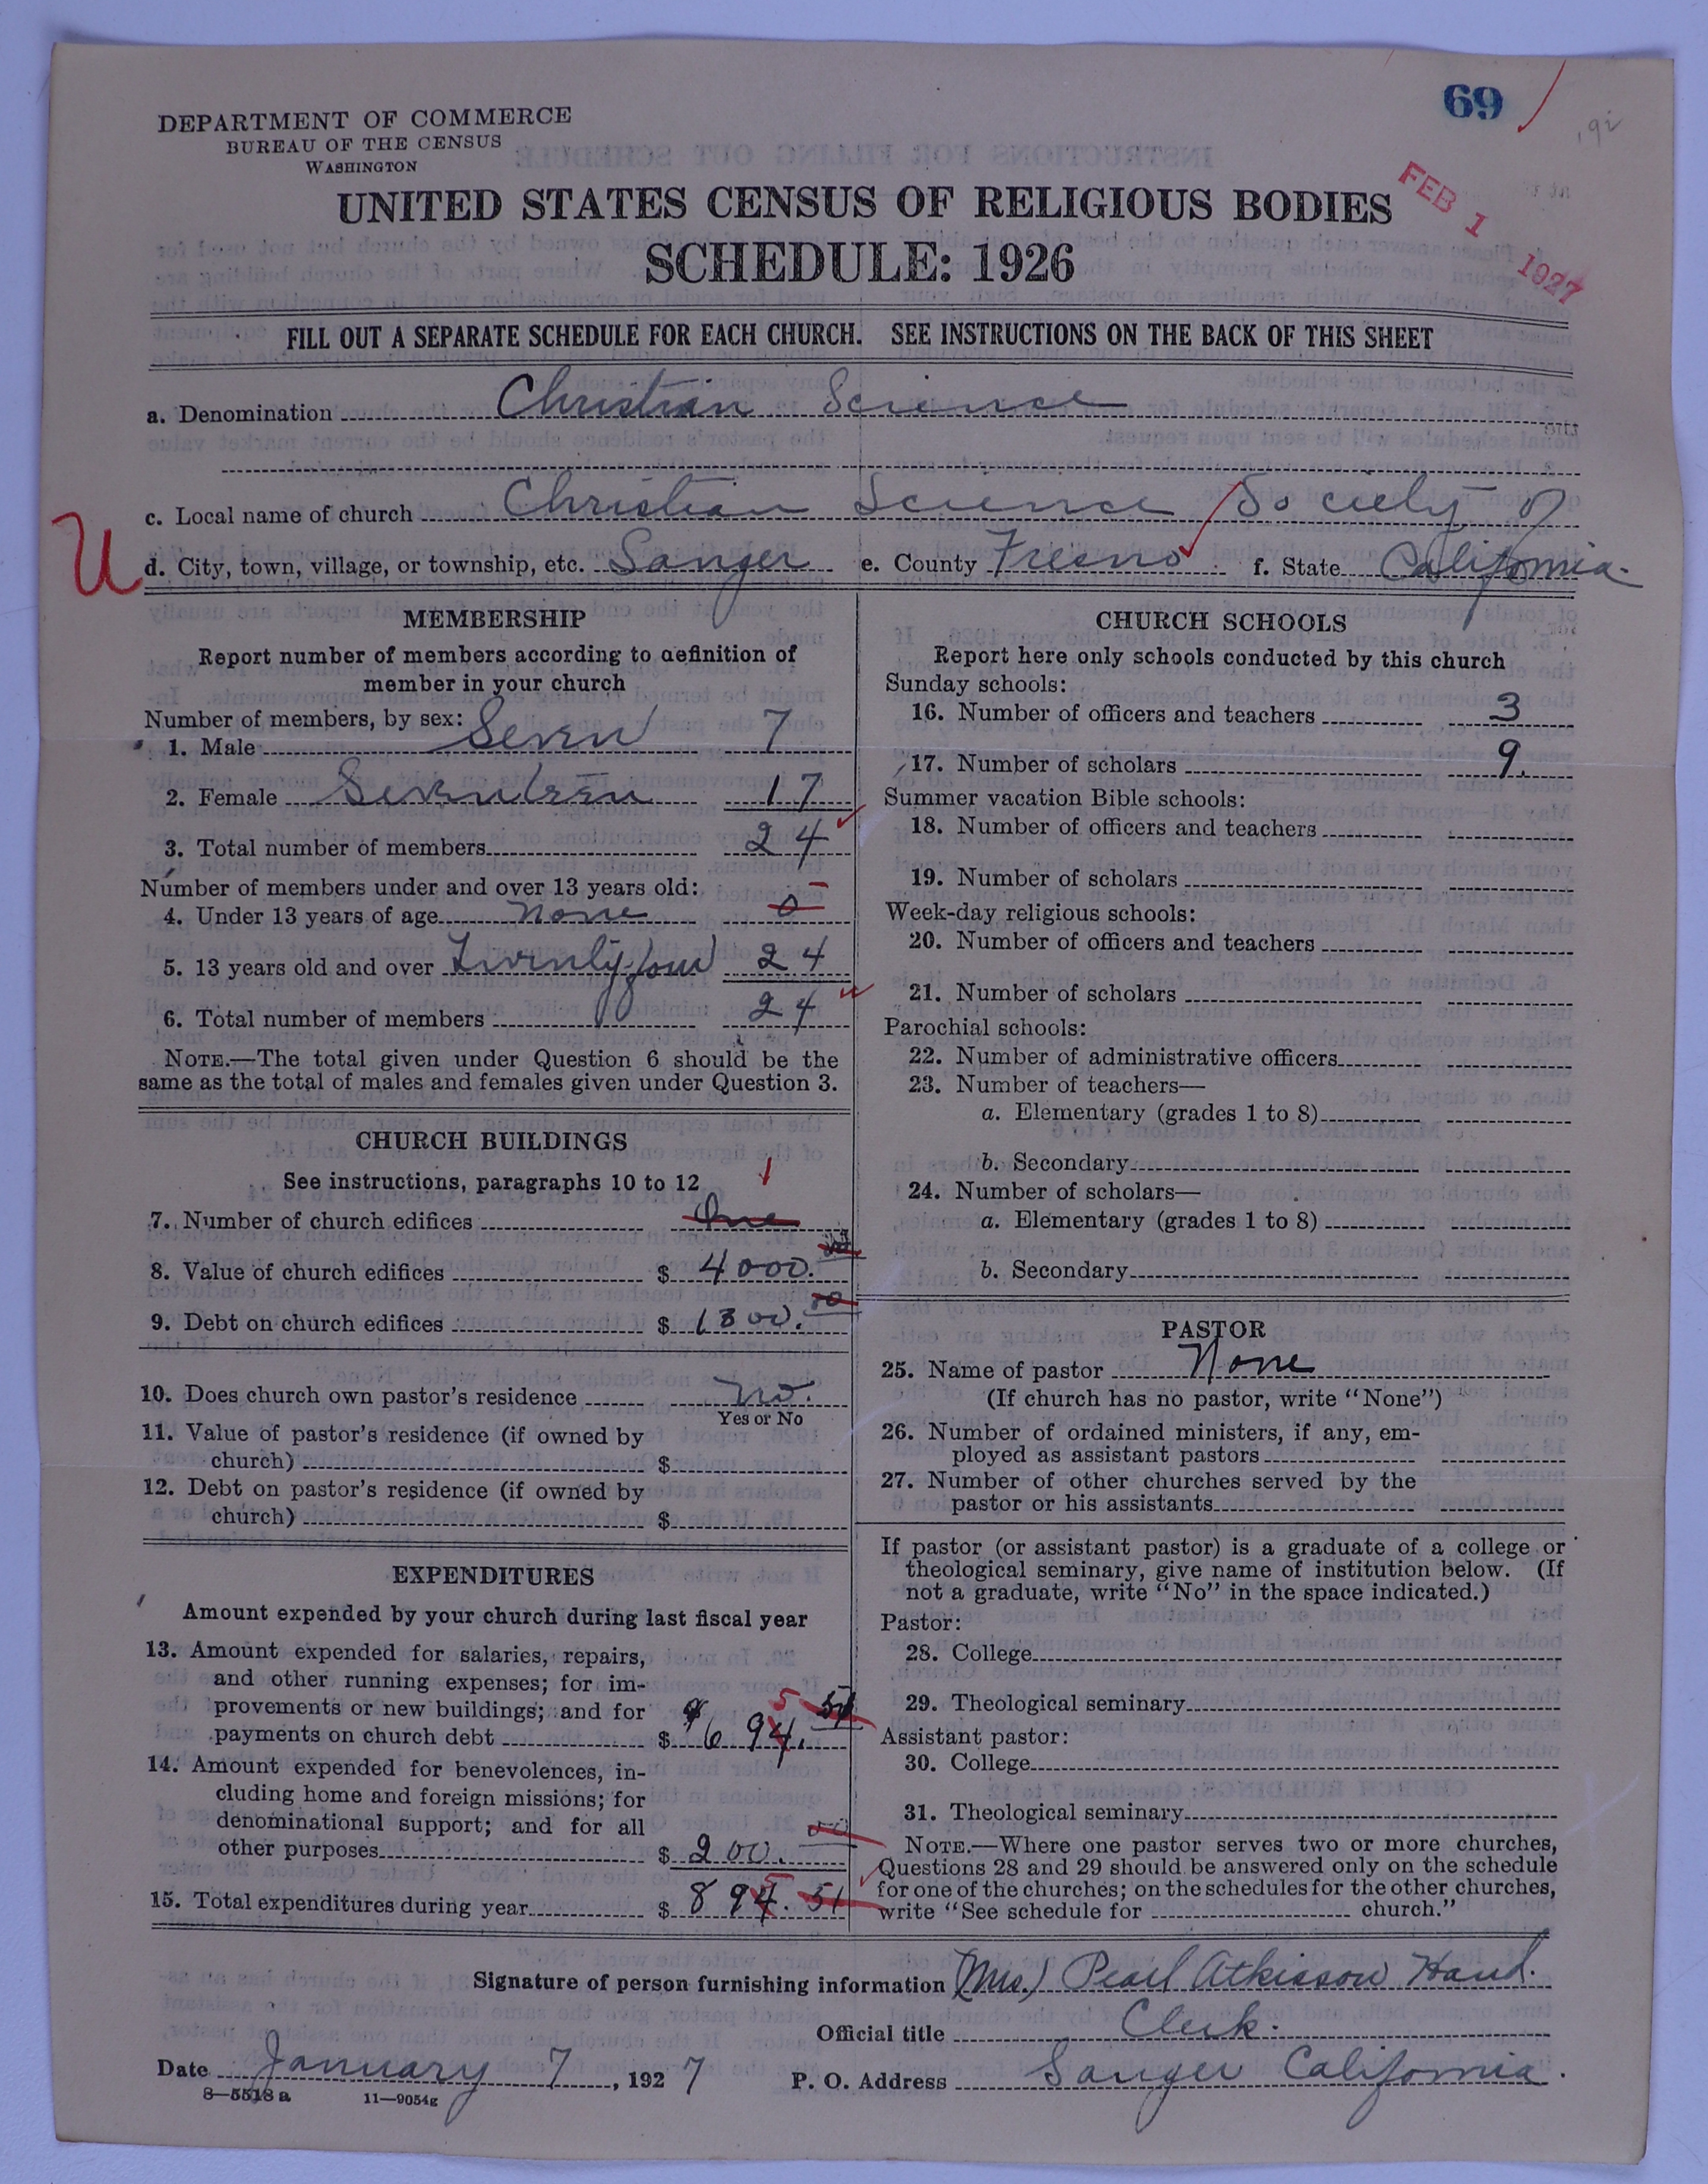 69
DEPARTMENT OF COMMERCE
BUREAU OF THE CENSUS
WASHINGTON
FEB 1 1927
UNITED STATES CENSUS OF RELIGIOUS BODIES
SCHEDULE: 1926
FILL OUT A SEPARATE SCHEDULE FOR EACH CHURCH. SEE INSTRUCTIONS ON THE BACK OF THIS SHEET
a. Denomination Christian Science
c. Local name of church Christian Science Society of
U
d. City, town, village, or township, etc. Sanger e. County Fresno f. State California.
MEMBERSHIP
Report number of members according to definition of
member in your church
Number of members, by sex:
1. Male Seven 7
2. Female Seventeen 17
3. Total number of members 24
Number of members under and over 13 years old:
4. Under 13 years of age none 0 –
5. 13 years old and over Twenty-four 24
6. Total number of members 24
NOTE.—The total given under Question 6 should be the
same as the total of males and females given under Question 3.
CHURCH BUILDINGS
See instructions, paragraphs 10 to 12
1
7. Number of church edifices One
8. Value of church edifices $ 4000. 00
9. Debt on church edifices $ 1300. 00
10. Does church own pastor's residence No.
Yes or No
11. Value of pastor's residence (if owned by
church) $
12. Debt on pastor's residence (if owned by
church) $
EXPENDITURES
Amount expended by your church during last fiscal year
13. Amount expended for salaries, repairs,
and other running expenses; for im-
provements or new buildings; and for
payments on church debt $ 694. 51
5
14. Amount expended for benevolences, in-
cluding home and foreign missions; for
denominational support; and for all
other purposes $ 200. 00
15. Total expenditures during year $ 894. 51
5
CHURCH SCHOOLS
Report here only schools conducted by this church
Sunday schools:
16. Number of officers and teachers 3
17. Number of scholars 9.
Summer vacation Bible schools:
18. Number of officers and teachers
19. Number of scholars
Week-day religious schools:
20. Number of officers and teachers
21. Number of scholars
Parochial schools:
22. Number of administrative officers
23. Number of teachers—
a. Elementary (grades 1 to 8)
b. Secondary
24. Number of scholars—
a. Elementary (grades 1 to 8)
b. Secondary
PASTOR
25. Name of pastor None
(If church has no pastor, write "None")
26. Number of ordained ministers, if any, em-
ployed as assistant pastors
27. Number of other churches served by the
pastor or his assistants
If pastor (or assistant pastor) is a graduate of a college or
theological seminary, give name of institution below. (If
not a graduate, write "No" in the space indicated.)
Pastor:
28. College
29. Theological seminary
Assistant pastor:
30. College
31. Theological seminary
NOTE.—Where one pastor serves two or more churches,
Questions 28 and 29 should be answered only on the schedule
for one of the churches; on the schedules for the other churches,
write "See schedule for church."
Signature of person furnishing information (Mrs.) Pearl Atkisson Hand.
Official title Clerk.
Date January 7, 1927 P. O. Address Sanger California.
8—5518 a 11—9054g